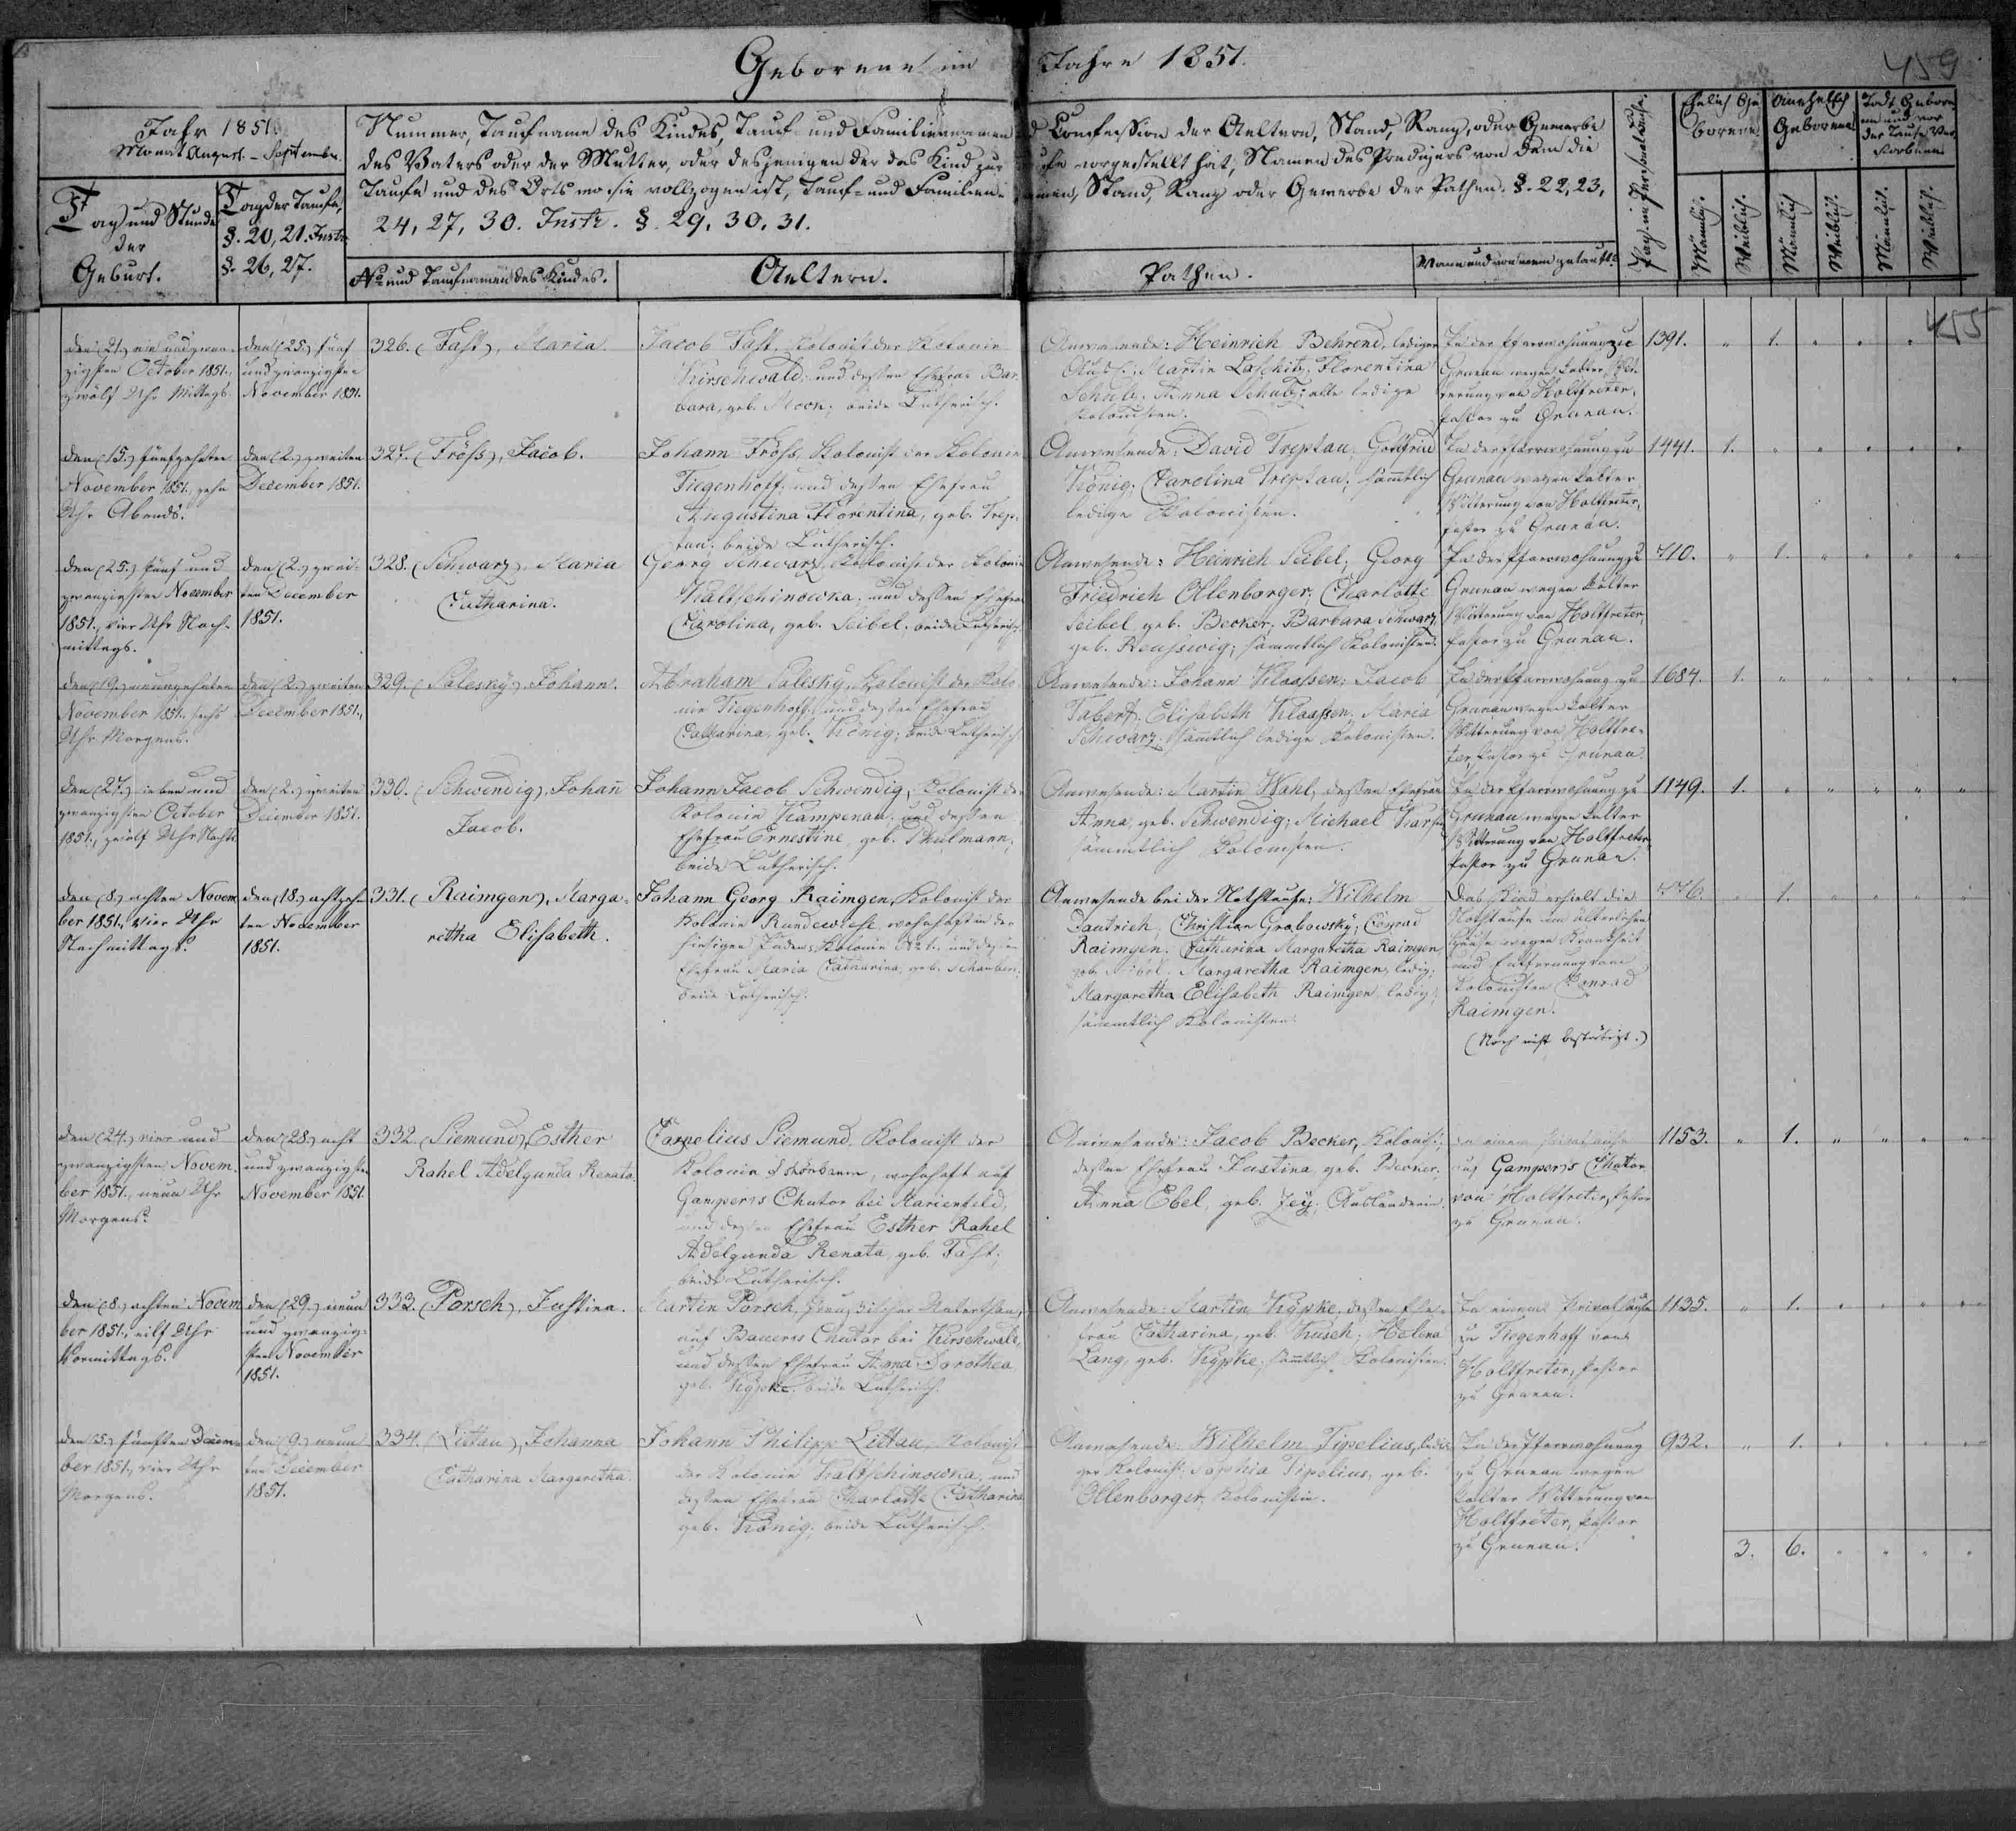 Geborene im Jahre 1851.
459
Jahr 1851.
Monat August. - September.
Tag und Stunde
der
Geburt.
Tag der Taufe,
§. 20, 21. Instr.
§. 26, 27.
Nummer, Taufname des Kindes, Tauf- und Familiennamen und Confession der Aeltern, Stand, Rang, oder Gewerbe
des Vaters oder der Mutter, oder desjenigen der das Kind zur Taufe vorgestellt hat, Namen des Predigers von dem die
Taufe und des Orts wo sie vollzogen ist, Tauf- und Familien-namen, Stand, Rang oder Gewerbe der Pathen. §. 22, 23,
24, 27, 30. Instr. §. 29, 30, 31.
No und Taufnamen des Kindes.
Aeltern.
Pathen.
Wann und von wem getauft.
Pag. im Personalbuche.
Ehelich Ge-
borene.
Unehelich
Geborene
Todt Gebore-
ne und vor
der Taufe Ver-
storbene
Männlich.
Weiblich.
Männlich.
Weiblich.
Männlich.
Weiblich.
455
den (21.) ein und zwan-
zigsten October 1851.,
zwölf Uhr Mittags.
den (25.) fünf
und zwanzigsten
November 1851.
326. (Fast), Maria.
Jacob Fast, Kolonist der Kolonie
Kirschwald, und dessen Ehefrau Bar-
bara, geb. Moon; beide Lutherisch.
Anwesende: Heinrich Behrend, lediger
Martin Laschitz, Florentina
Schulz, Anna Schulz; alle ledige
Kolonisten.
In der Pfarrwohnung zu
Grunau wegen kalter Wit-
terung von Holtfreter,
Pastor zu Grunau.
1391. " 1. " " " "
den (15.) fünfzehnten
November 1851., zehn
Uhr Abends.
den (2.) zweiten
December 1851.
327. (Fröss), Jacob.
Johann Fröss, Kolonist der Kolonie
Tiegenhoff, und dessen Ehefrau
Augustina Florentina, geb. Trep-
tau; beide Lutherisch.
Anwesende: David Treptau; Gottfried
König; Carolina Treptau; sämmtlich
ledige Kolonisten.
In der Pfarrwohnung zu
Grunau wegen kalter
Witterung von Holtfreter,
Pastor zu Grunau.
1441. 1. " " " " "
den (25.) fünf und
zwanzigsten November
1851., vier Uhr Nach-
mittags.
den (2.) zwei-
ten December
1851.
328. (Schwarz), Maria
Catharina.
Georg Schwarz, Kolonist der Kolonie
Kaltschinowka, und dessen Ehefrau
Carolina, geb. Seibel, beide Lutherisch.
Anwesende: Heinrich Seibel; Georg
Friedrich Ollenborger; Charlotte
Seibel, geb. Becker; Barbara Schwarz
geb. Reusswig; sämmtlich Kolonisten.
In der Pfarrwohnung zu
Grunau wegen kalter
Witterung von Holtfreter,
Pastor zu Grunau.
710. " 1. " " " "
den (19.) neunzehnten
November 1851., sechs
Uhr Morgens.
den (2.) zweiten
December 1851.,
329. (Salesky), Johann.
Abraham Salesky, Kolonist der Kolo-
nie Tiegenhoff, und dessen Ehefrau
Catharina, geb. König; beide Lutherisch.
Anwesende: Johann Klaassen; Jacob
Tabert; Elisabeth Klaassen; Maria
Schwarz; sämmtlich ledige Kolonisten.
In der Pfarrwohnung zu
Grunau wegen kalter
Witterung von Holtfre-
ter, Pastor zu Grunau.
1684. 1. " " " " "
den (27.) sieben und
zwanzigsten October
1851., zwölf Uhr Nachts.
den (2.) zweiten
December 1851.
330. (Schwendig), Johann
Jacob.
Johann Jacob Schwendig, Kolonist der
Kolonie Kampenau, und dessen
Ehefrau Ernestine, geb. Thulmann;
beide Lutherisch.
Anwesende: Martin Wahl, dessen Ehefrau
Anna, geb. Schwendig; Michael
sämmtlich Kolonisten.
In der Pfarrwohnung zu
Grunau wegen kalter
Witterung von Holtfreter
Pastor zu Grunau.
1149. 1. " " " " "
den (8.) achten Novem-
ber 1851., vier Uhr
Nachmittags.
den (18.) achtzehn-
ten November
1851.
331. (Raimgen), Marga-
retha Elisabeth.
Johann Georg Raimgen, Kolonist der
Kolonie Rundewiese, wohnhaft in der
hiesigen Juden-Kolonie No 1., und dessen
Ehefrau Maria Catharina, geb.
beide Lutherisch.
Anwesende bei der Nothtaufe: Wilhelm
Dautrich; Christian Grabowsky; Conrad
Raimgen; Catharina Margaretha Raimgen
geb. Margaretha Raimgen, ledig;
Margaretha Elisabeth Raimgen, ledig;
sämmtlich Kolonisten.
Das Kind erhielt die
Nothtaufe im älterlichen
Hause wegen Krankheit
und Entfernung vom
Kolonisten Conrad
Raimgen.
(Noch nicht bestätigt.)
776. " 1. " " " "
den (24.) vier und
zwanzigsten Novem-
ber 1851., neun Uhr
Morgens.
den (28.) acht
und zwanzigsten
November 1851.
332. (Siemund), Esther
Rahel Adelgunda Renata.
Cornelius Siemund, Kolonist der
Kolonie Schönbaum, wohnhaft auf
Gampers Chutor bei Marienfeld,
und dessen Ehefrau Esther Rahel
Adelgunda Renata, geb. Fast;
beide Lutherisch.
Anwesende: Jacob Becker, Kolonist,
dessen Ehefrau Justina, geb. Becker;
Anna Ebel, geb. Zey, Ausländerin.
In einem Privathause
auf Gampers Chutor
von Holtfreter, Pastor
zu Grunau.
1153. " 1. " " " "
den (8.) achten Novem-
ber 1851., eilf Uhr
Vormittags.
den (29.) neun
und zwanzig-
sten November
1851.
333. (Porsch), Justina.
Martin Porsch, preussischer Unterthan,
auf Bauers Chutor bei Kirschwald,
und dessen Ehefrau Anna Dorothea,
geb. Kypke; beide Lutherisch.
Anwesende: Martin Kypke, dessen Ehe-
frau Catharina, geb. Kusch; Helena
Lang, geb. Kypke; sämmtlich Kolonisten.
In einem Privathause
zu Tiegenhoff von
Holtfreter, Pastor
zu Grunau.
1135. " 1. " " " "
den (5.) fünften Decem-
ber 1851., vier Uhr
Morgens.
den (9.) neun-
ten December
1851.
334. (Littau), Johanna
Catharina Margaretha.
Johann Philipp Littau, Kolonist
der Kolonie Kaltschinowka, und
dessen Ehefrau Charlotte Catharina
geb. König; beide Lutherisch.
Anwesende: Wilhelm Tipelius, ledi-
ger Kolonist; Sophia Tipelius, geb.
Ollenborger, Kolonistin.
In der Pfarrwohnung
zu Grunau wegen
kalter Witterung von
Holtfreter, Pastor
zu Grunau.
932. " 1. " " " "
3. 6. " " " "